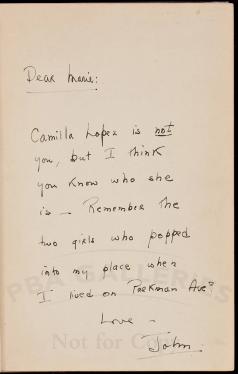 Dear Marie:
Camilla Lopez is not
you, but I think
you know who she
is — Remember the
two girls who popped
into my place when
I lived on Parkman Ave?
Love —
John.
PBA GALLERIES
Not for Com